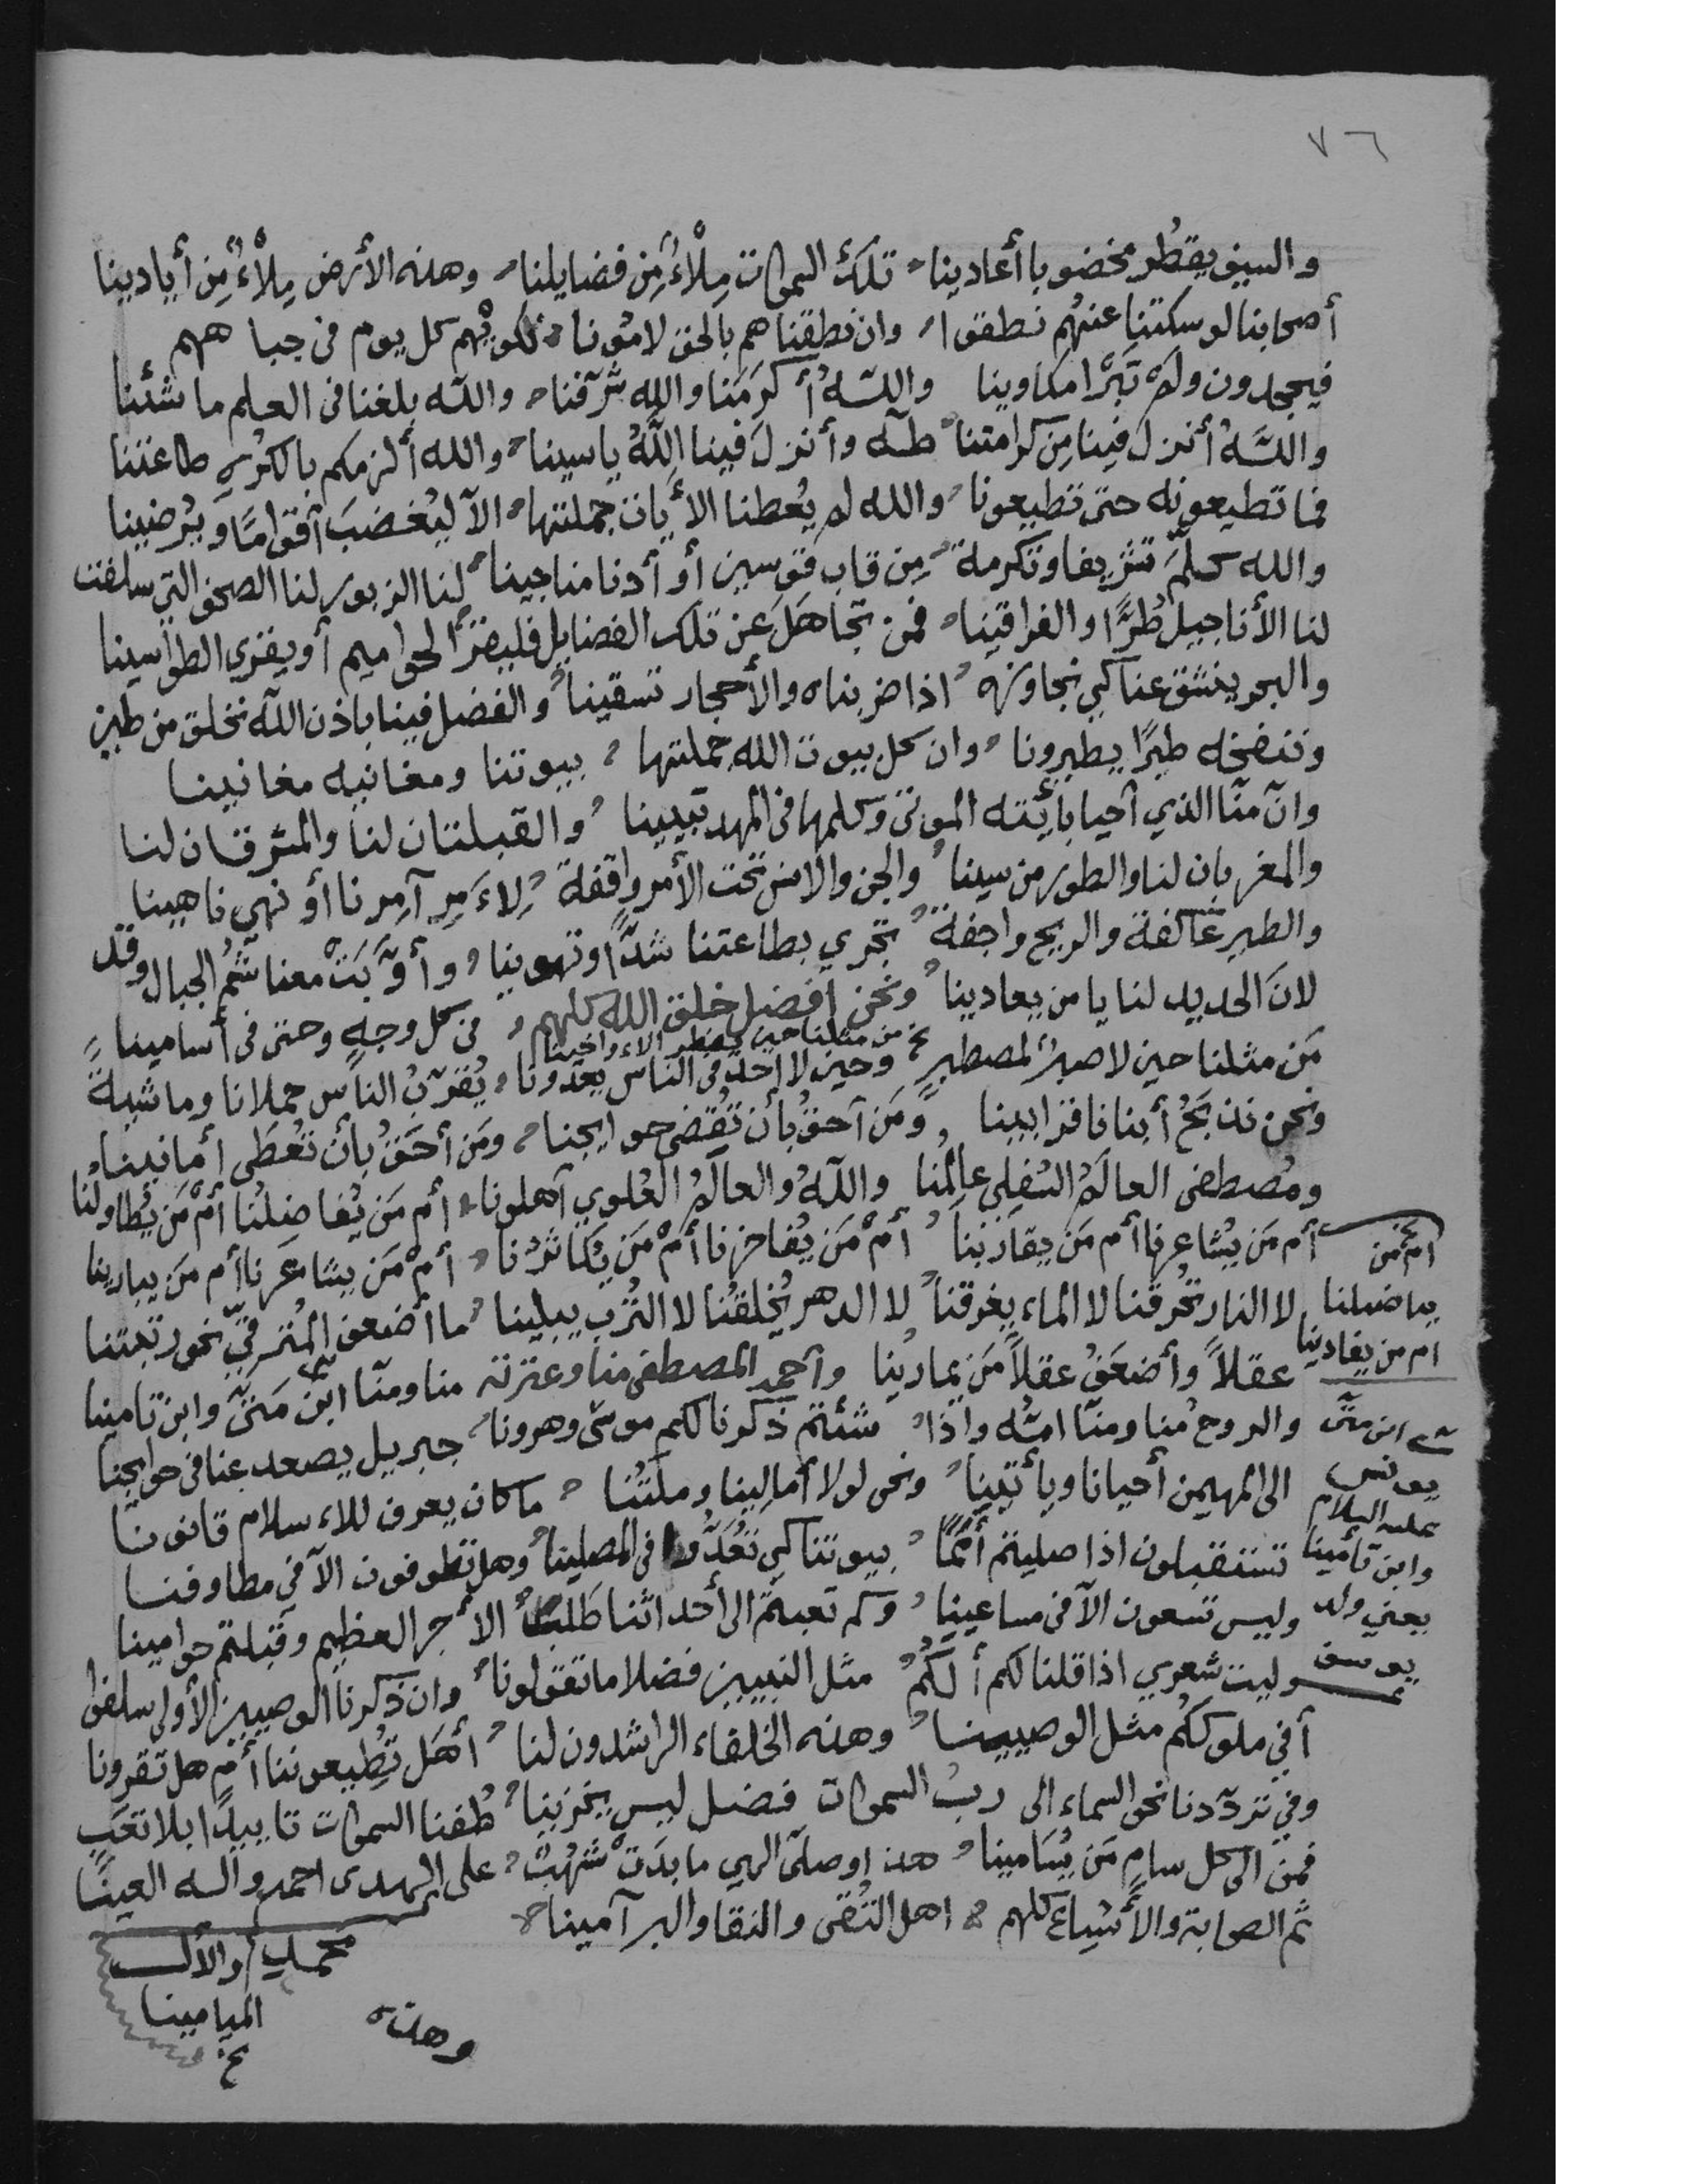 ٧٦
والسيف يقطر مخضوبا أعادينا تلك السموات مِلْأُ مِن فضايلنا وهذه الأرض مِلْأُ مِن أيادينا
أصحابنا لو سكتنا عنهُم نطقوا وان نطقنا هم بالحق لامُونا نكويهم كل يوم في جباههم
فيجحدون ولم تَبَرَّا مكاوينا واللهُ أكرَمَنا والله شرّفنا والله بلغنا في العلم ما شئنا
واللهُ أنزل فينا مِن كرامتنا طه وأنزلَ فينا اللهُ ياسينا والله ألزمكم بالكُرهِ طاعتنا
فما تطيعونه حتى تطيعونا والله لم يُعطنا الأيات جملتها الاّ ليُغضبَ أقوامًا ويُرضينا
والله كلّمَ تشريفا وتكرمة مِن قاب قوسين أو أدنا مناجينا لنا الزبور لنا الصحف التي سلفت
لنا الأناجيل طُرًّا والفراقينا فمن تجاهَلَ عن تلك الفضايل فليقرَ الحواميم أو يقري الطواسينا
والبحر ينشق عنا كي نجاوزه اذا ضربناه والأحجار تسقينا والفضل فينا باذن الله نخلق من طين
وننفخه طيرًا يطيرونا وان كل بيوت الله جملتها بيوتنا ومغانيه مغانينا
وانّ منّا الذي أحيا بأيته الموتى وكلمها في المهد تبيينا والقبلتان لنا والمشرقان لنا
والمغربان لنا والطور من سينا والجن والانس تحت الأمر واقفة لِأَمرِ آمِرنا أو نهي ناهينا
والطير عاكفة والريح واجفة تجري بطاعتنا شدًّا وتهوينا وأوَّبَتْ معنا شُمُّ الجبال وقد
لانَ الحديد لنا يا من يعادينا ونحن أفضل خلق الله كلهم في كل وجهٍ وحتى في أسامينا
من مثلنا حين
مَن مثلنا حين لا صبرٌ لمصطبرٍ وحين لا أحدٌ في الناس يعدونا يُقرّبُ الناس حملانا وماشيةً
ونحن نذبَحُ أبنانا قرابينا ومَن أحقُ بأن تُقضى حوايجنا ومَن أحَقُ بأن تُعطَى أمانينا
ومُصطفى العالَمُ السُفلِي عالِمُنا واللهُ والعالَمُ العُلوي أهلونا أم مَن يُفاضِلُنا أمْ مَن يُطاولُنا
أم مَن يُشاعرنا أم مَن يقاربنا أمْ مَن يُفاخرنا أمْ مَن يُكاثرنا أمْ مَن يشاعرنا أم مَن يبارينا
لا النار تُحرقنا لا الماء يغرقنا لا الدهر يُخلقُنا لا التُرب يبلينا ما أضعف المُترقّي نحو رتبتنا
عقلاً وأضعَفُ عقلاً مَن يمارينا وأحمد المصطفى منا وعترته منا ومنّا ابن مَتّى وابن تامينا
والروح منا ومنّا امّه واذا شئتم ذكرنا لكم موسى وهرونا جبريل يصعد عنا في حوايجنا
الى المهيمن أحيانا ويأتينا ونحن لولا أمالينا وملّتُنا ما كان يعرف للاسلام قانونا
تستقبلون اذا صليتم أُمَمًا بيوتنا كي تُعَدُّوا في المصلينا وهل تطوفون الاّ في مطاوفنا
وليس تسعون الاّ في مساعينا وكم تعبتم الى أحداثنا طَلَبًا الأجر العظيم وقبلتم حوامينا
وليت شعري اذا قلنا لكم ألَكُم مثل النبيين فضلا ما تقولونا وان ذكرنا الوصيين الأولى سلفوا
أفي ملوككُم مثل الوصيينا وهذه الخلفاء الراشدون لنا أهَل تُطيعوننا أم هل تقرونا
وفي تردّدنا نحو السماء الى ربّ السموات فضل ليس يخزينا طُفنا السموات تأييدًا بلا تعَبٍ
فمن الى كل سامٍ مَن يُسَامينا هذا وصلّى الهي ما بدَتْ شُهُبٌ على الهدى احمد وآله العينا
ثم الصحابة والأشياع كلهم اهل التُقى والنقا والبر آمينا
ام من
يفاضلنا
ام من يعادينا
ابن متى
يونس
عليه السلام
وابن تأمينا
يعني ولد
يوسف
محمد والأل
الميامينا
وهذه